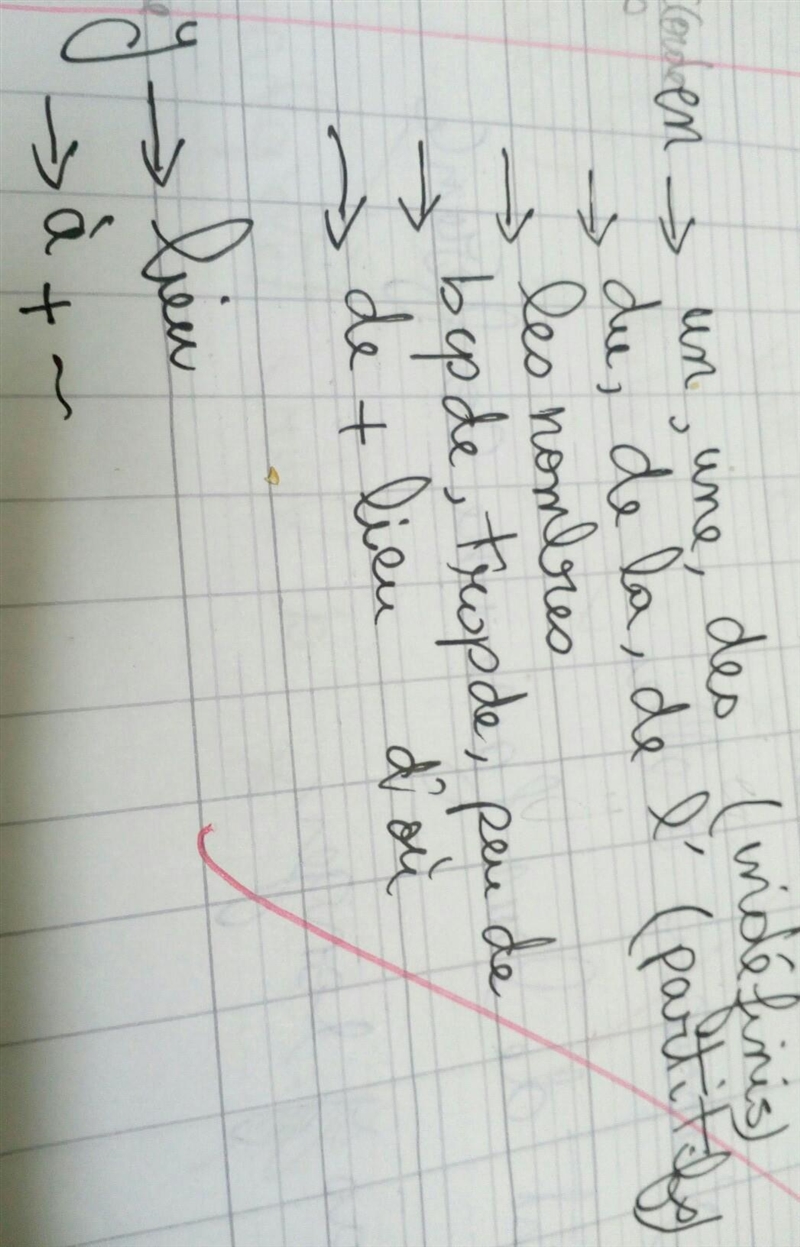 en → un, une, des (indéfinis)
→ du, de la, de l' (partitifs)
→ les nombres
→ bcp de, trop de, peu de
→ de + lieu d'où
y → lieu
→ à + ~